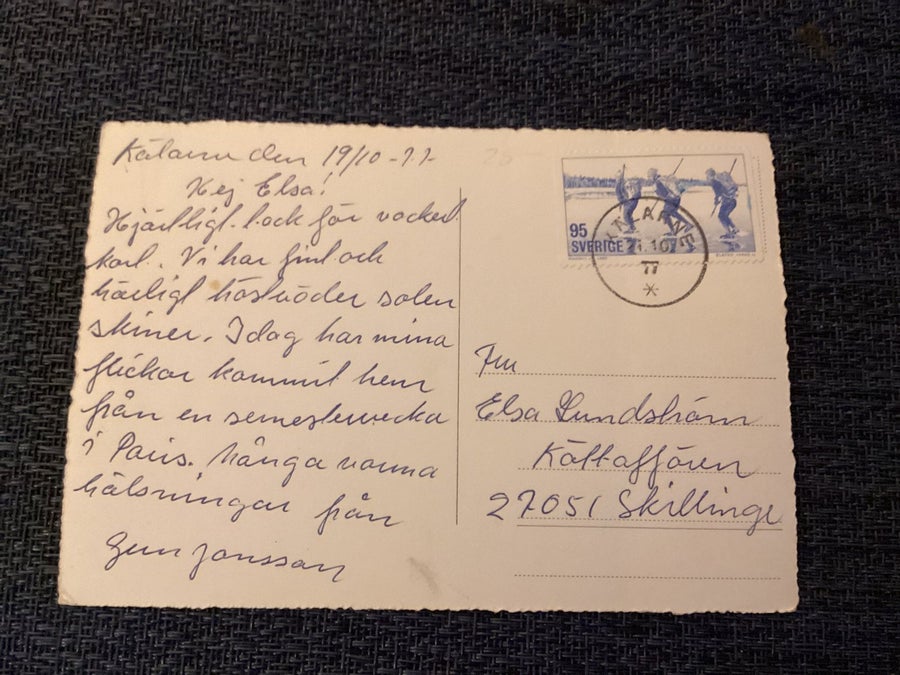 Kälarne den 19/10-77-
Hej Elsa!
Hjärtligt tack för vackert
kort. Vi har fint och
härligt höstväder solen
skiner. Idag har mina
flickor kommit hem
från en semestervecka
i Paris. Många varma
hälsningar från
Gun Jonsson
95
SVERIGE
KÄLARNE
21.10
77
Fru
Elsa Lundström
Köttaffären
27051 Skillinge